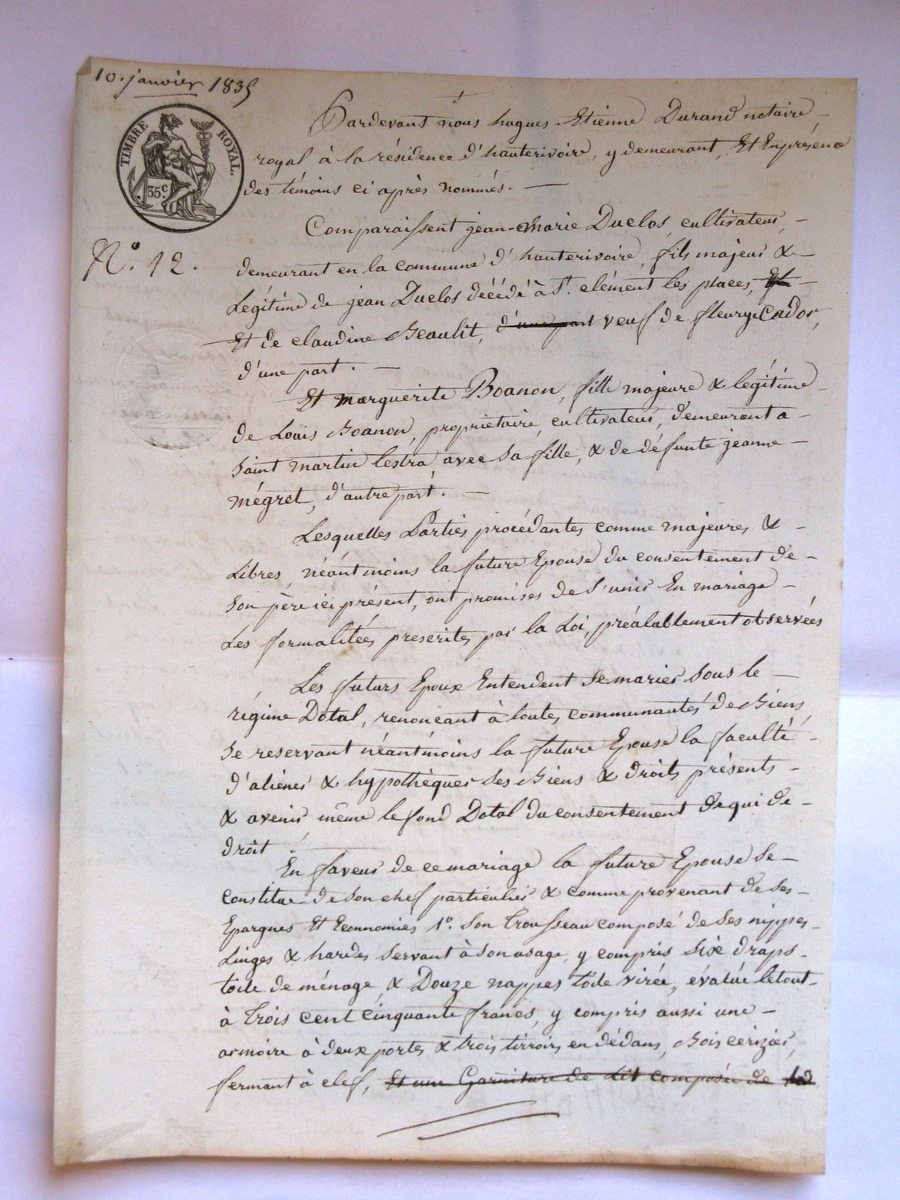 10. janvier 1835
TIMBRE ROYAL.
35c
N°. 12.
Pardevant nous hugues Etienne Durand notaire
royal à la résidence d'hauterivoire, y demeurant, Et En présence
des témoins ci après nommés. —
Comparaissent jean-Marie Duclos, cultivateur,
demeurant en la commune d'hauterivoire, fils majeur &
Légitime de jean Duclos décédé à St. clément les places, Et
Et de claudine Beaulit, d'une part veuf de fleurye Cador,
d'une part. —
Et marguerite Boanon, fille majeure & legitime
de Louis Boanon, propriétaire, cultivateur, demeurant a
Saint martin lestra, avec sa fille, & de défunte jeanne
mégret, d'autre part. —
Lesquelles Parties procédantes comme majeures &
Libres, néantmoins la future Epouse du consentement de
Son père ici présent, ont promises de S'unir En mariage
Les formalités prescrites par la Loi, préalablement observées
Les futurs Epoux Entendent se marier sous le
régime Dotal, renonçant à toutes communautés de Biens
Se reservant néantmoins la future Epouse la faculté
d'aliéner & hypothéquer Ses Biens & droits présents
& avenir même le fond Dotal du consentement de qui de
droit
En faveur de ce mariage la future Epouse Se
Constitue de Son chef particulier & comme provenant de Ses
Epargnes Et Economies 1°. Son Trousseau composé de Ses nippes
Linges & hardes servant à son usage, y compris Six draps
toile de ménage, & Douze nappes toile virée, évalué le tout
à Trois cent cinquante francs, y compris aussi une
armoire à deux portes & trois tirroirs en dédans, Bois cérizier,
fermant à clef, Et une Garniture de Lit composée de